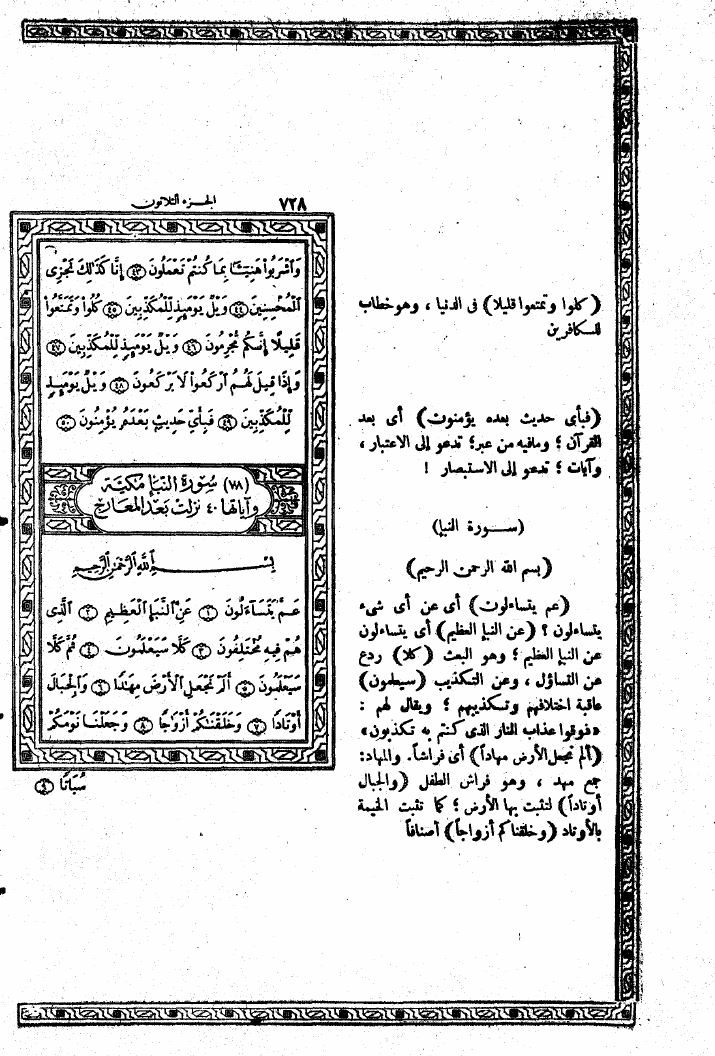 ٧٢٨ الجزء الثلاثون
وَاشْرَبُوا هَنِيٓـًٔا بِمَا كُنتُمْ تَعْمَلُونَ ﴿٤٣﴾ إِنَّا كَذَٰلِكَ نَجْزِى
الْمُحْسِنِينَ ﴿٤٤﴾ وَيْلٌ يَوْمَئِذٍ لِّلْمُكَذِّبِينَ ﴿٤٥﴾ كُلُوا وَتَمَتَّعُوا
قَلِيلًا إِنَّكُم مُّجْرِمُونَ ﴿٤٦﴾ وَيْلٌ يَوْمَئِذٍ لِّلْمُكَذِّبِينَ ﴿٤٧﴾
وَإِذَا قِيلَ لَهُمُ ارْكَعُوا لَا يَرْكَعُونَ ﴿٤٨﴾ وَيْلٌ يَوْمَئِذٍ
لِّلْمُكَذِّبِينَ ﴿٤٩﴾ فَبِأَىِّ حَدِيثٍ بَعْدَهُ يُؤْمِنُونَ ﴿٥٠﴾
(٧٨) سُورَة النَّبَإِ مَكِّيَّة
وآياتها ٤٠ نزلت بعد المعارج
بِسْمِ اللَّهِ الرَّحْمَٰنِ الرَّحِيمِ
عَمَّ يَتَسَآءَلُونَ ﴿١﴾ عَنِ النَّبَإِ الْعَظِيمِ ﴿٢﴾ الَّذِى
هُمْ فِيهِ مُخْتَلِفُونَ ﴿٣﴾ كَلَّا سَيَعْلَمُونَ ﴿٤﴾ ثُمَّ كَلَّا
سَيَعْلَمُونَ ﴿٥﴾ أَلَمْ نَجْعَلِ الْأَرْضَ مِهَٰدًا ﴿٦﴾ وَالْجِبَالَ
أَوْتَادًا ﴿٧﴾ وَخَلَقْنَٰكُمْ أَزْوَٰجًا ﴿٨﴾ وَجَعَلْنَا نَوْمَكُمْ
سُبَاتًا ﴿٩﴾
(كلوا وتمتعوا قليلا) فى الدنيا ، وهو خطاب
للكافرين
(فبأى حديث بعده يؤمنون) أى بعد
القرآن ؛ ومافيه من عبر ؛ تدعو إلى الاعتبار ،
وآيات ؛ تدعو إلى الاستبصار !
(ســورة النبإ)
(بسم الله الرحمن الرحيم)
(عم يتساءلون) أى عن أى شىء
يتساءلون ؟ (عن النبإ العظيم) أى يتساءلون
عن النبإ العظيم ؛ وهو البعث (كلا) ردع
عن التساؤل ، وعن التكذيب (سيعلمون)
عاقبة اختلافهم وتكذيبهم ؛ ويقال لهم :
«ذوقوا عذاب النار الذى كنتم به تكذبون»
(ألم نجعل الأرض مهاداً) أى فراشاً. والمهاد:
جمع مهد ، وهو فراش الطفل (والجبال
أوتاداً) لتثبت بها الأرض ؛ كما تثبت الخيمة
بالأوتاد (وخلقناكم أزواجاً) أصنافاً